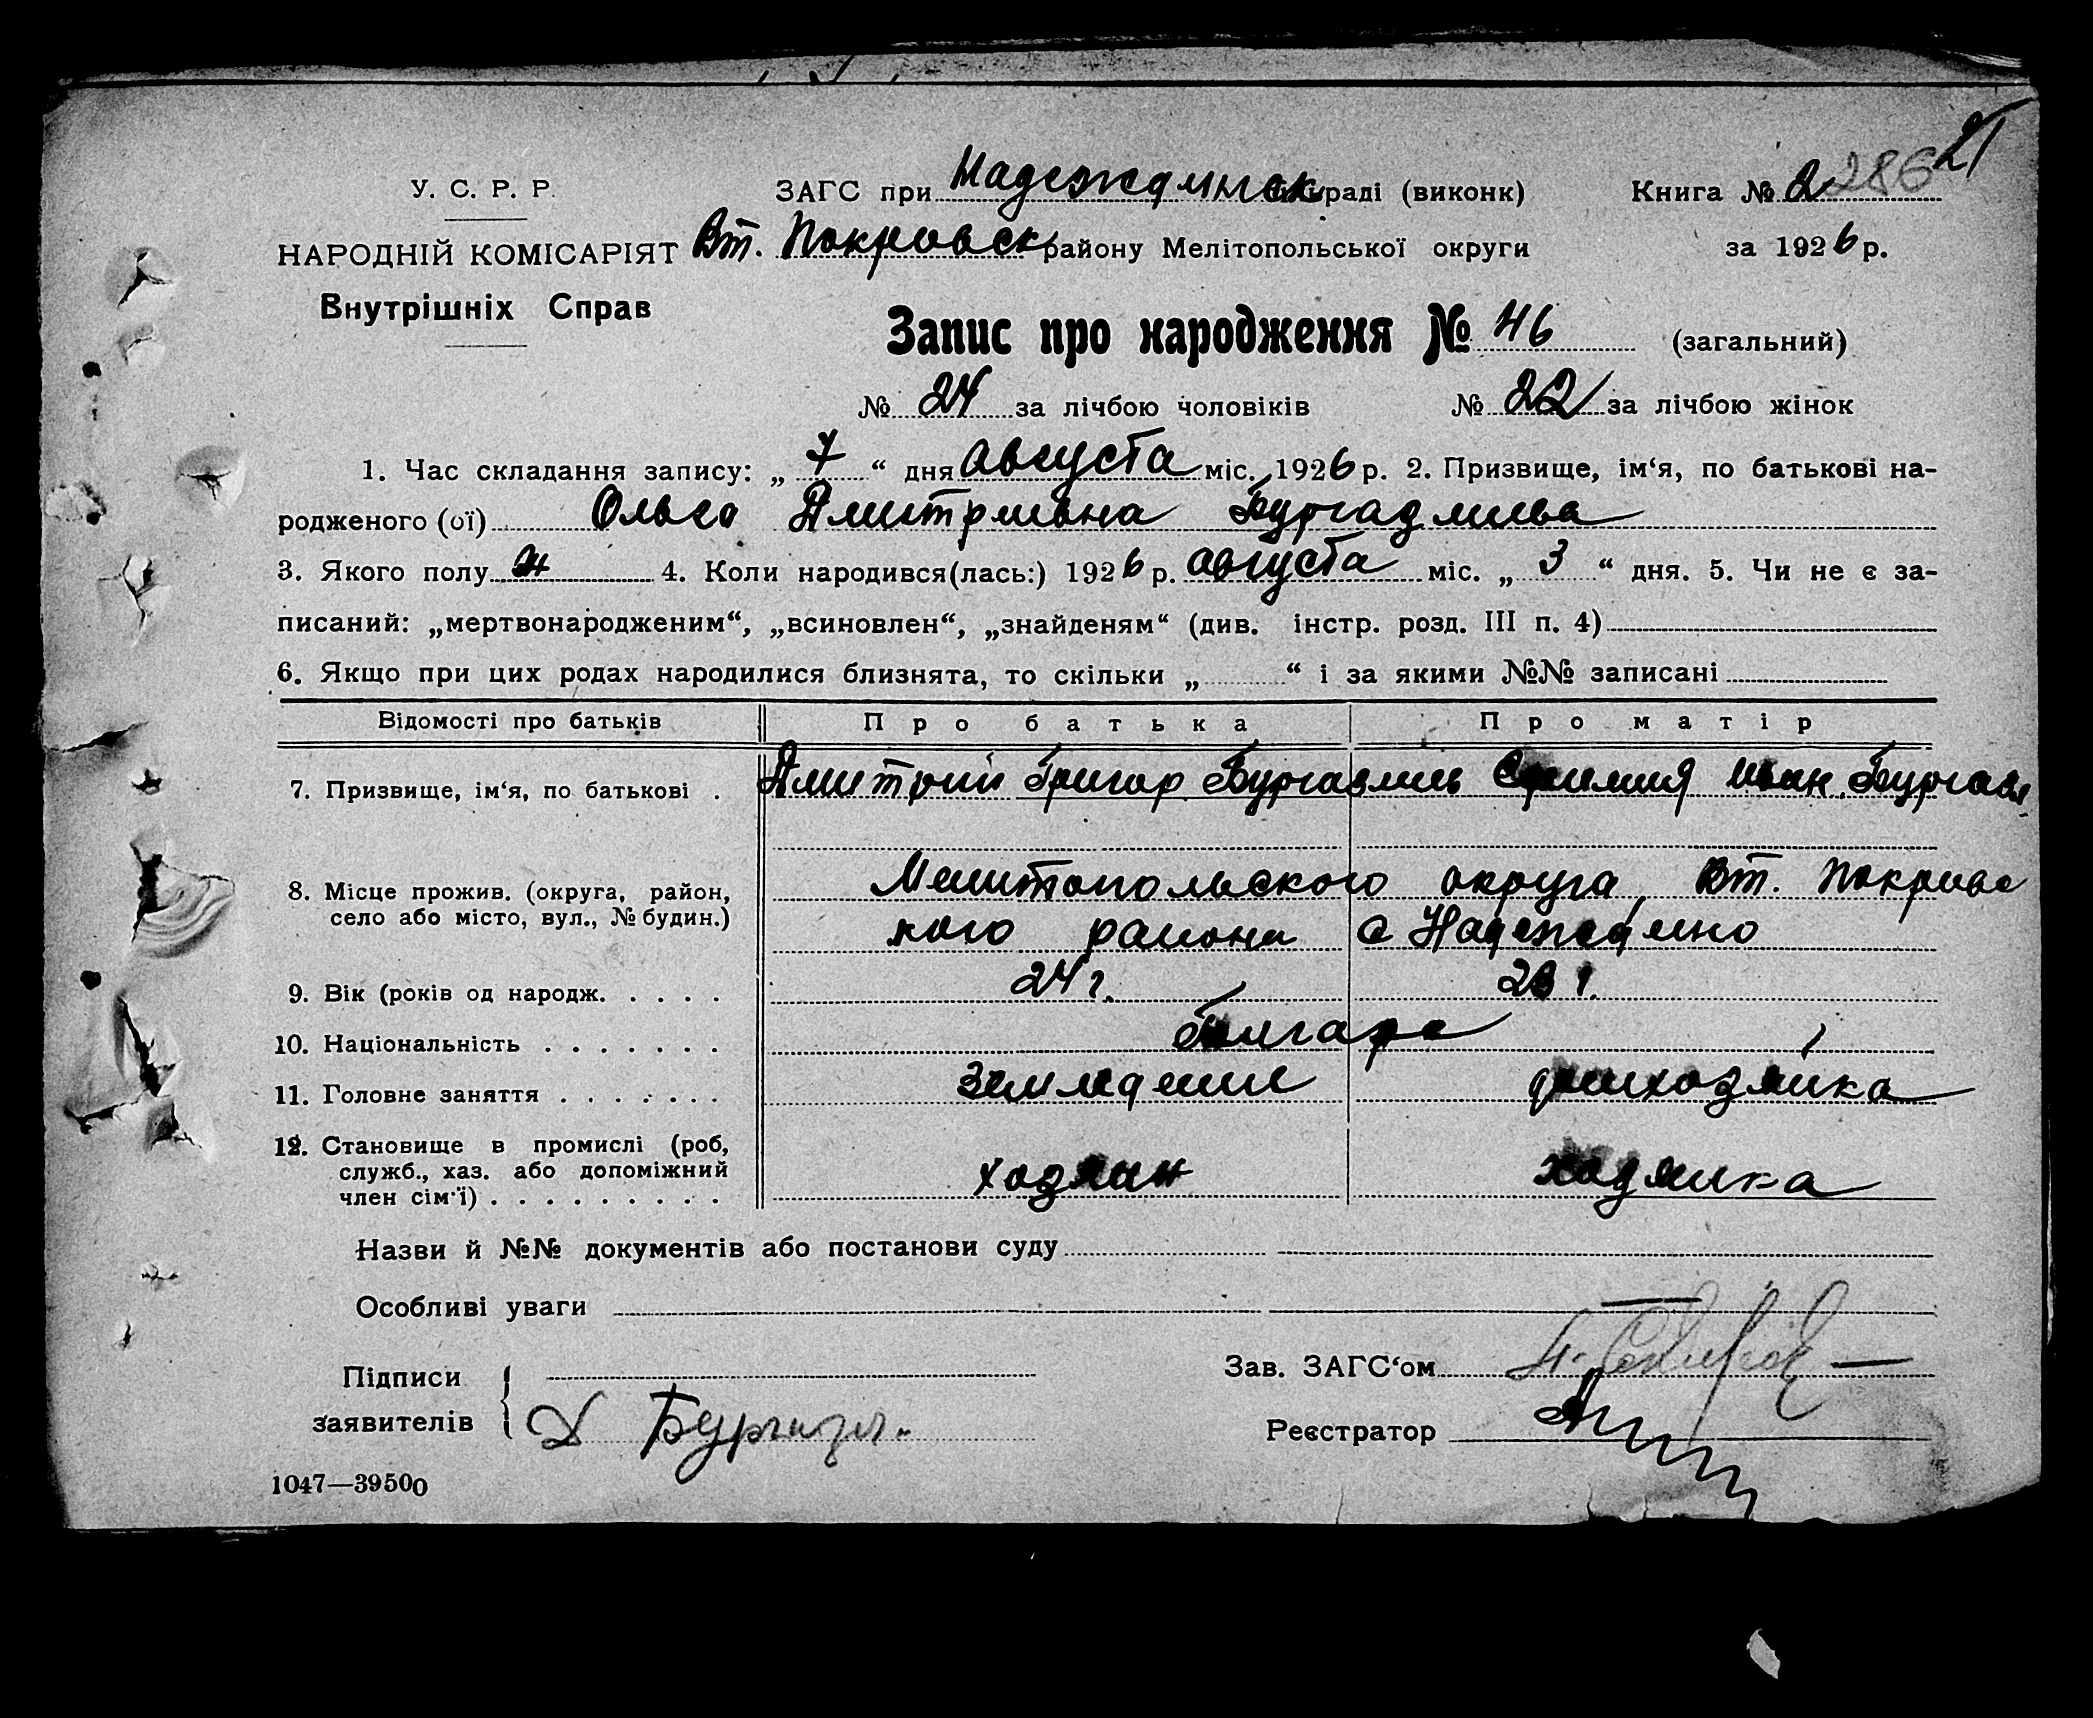 286 21
У. С. Р. Р. ЗАГС при Надеждинск раді (виконк) Книга № 2
НАРОДНІЙ КОМІСАРІЯТ Вт. Покровск району Мелітопольської округи за 1926 р.
Внутрішніх Справ
Запис про народження № 46 (загальний)
№ 24 за лічбою чоловіків № 22 за лічбою жінок
1. Час складання запису: „ 7 “ дня августа міс. 1926 р. 2. Призвище, ім‘я, по батькові на-
родженого (ої) Ольга Дмитриевна Бургаджиева
3. Якого полу ж 4. Коли народився(лась:) 1926 р. августа міс. „ 3 “ дня. 5. Чи не є за-
писаний: „мертвонародженим“, „всиновлен“, „знайденям“ (див. інстр. розд. III п. 4)
6. Якщо при цих родах народилися близнята, то скільки „ “ і за якими №№ записані
Відомості про батьків Про батька Про матір
7. Призвище, ім‘я, по батькові . Дмитрий Григор Бургаджиев Ефимия Иван. Бургадж
Мелитопольского округа Вт. Покровс
8. Місце прожив. (округа, район,
село або місто, вул., № будин.)
кого района с Надеждино
9. Вік (років од народж. . . . . 24 г. 23 г.
10. Національність . . . . . . . болгаре
11. Головне заняття . . . . . . . земледелие домхозяйка
12. Становище в промислі (роб,
служб., хаз. або допоміжний хозяин хозяйка
член сім‘ї) . . . . . . . . .
Назви й №№ документів або постанови суду
Особливі уваги
Підписи Зав. ЗАГС‘ом
заявителів Д Бургадж. Реєстратор
1047—39500